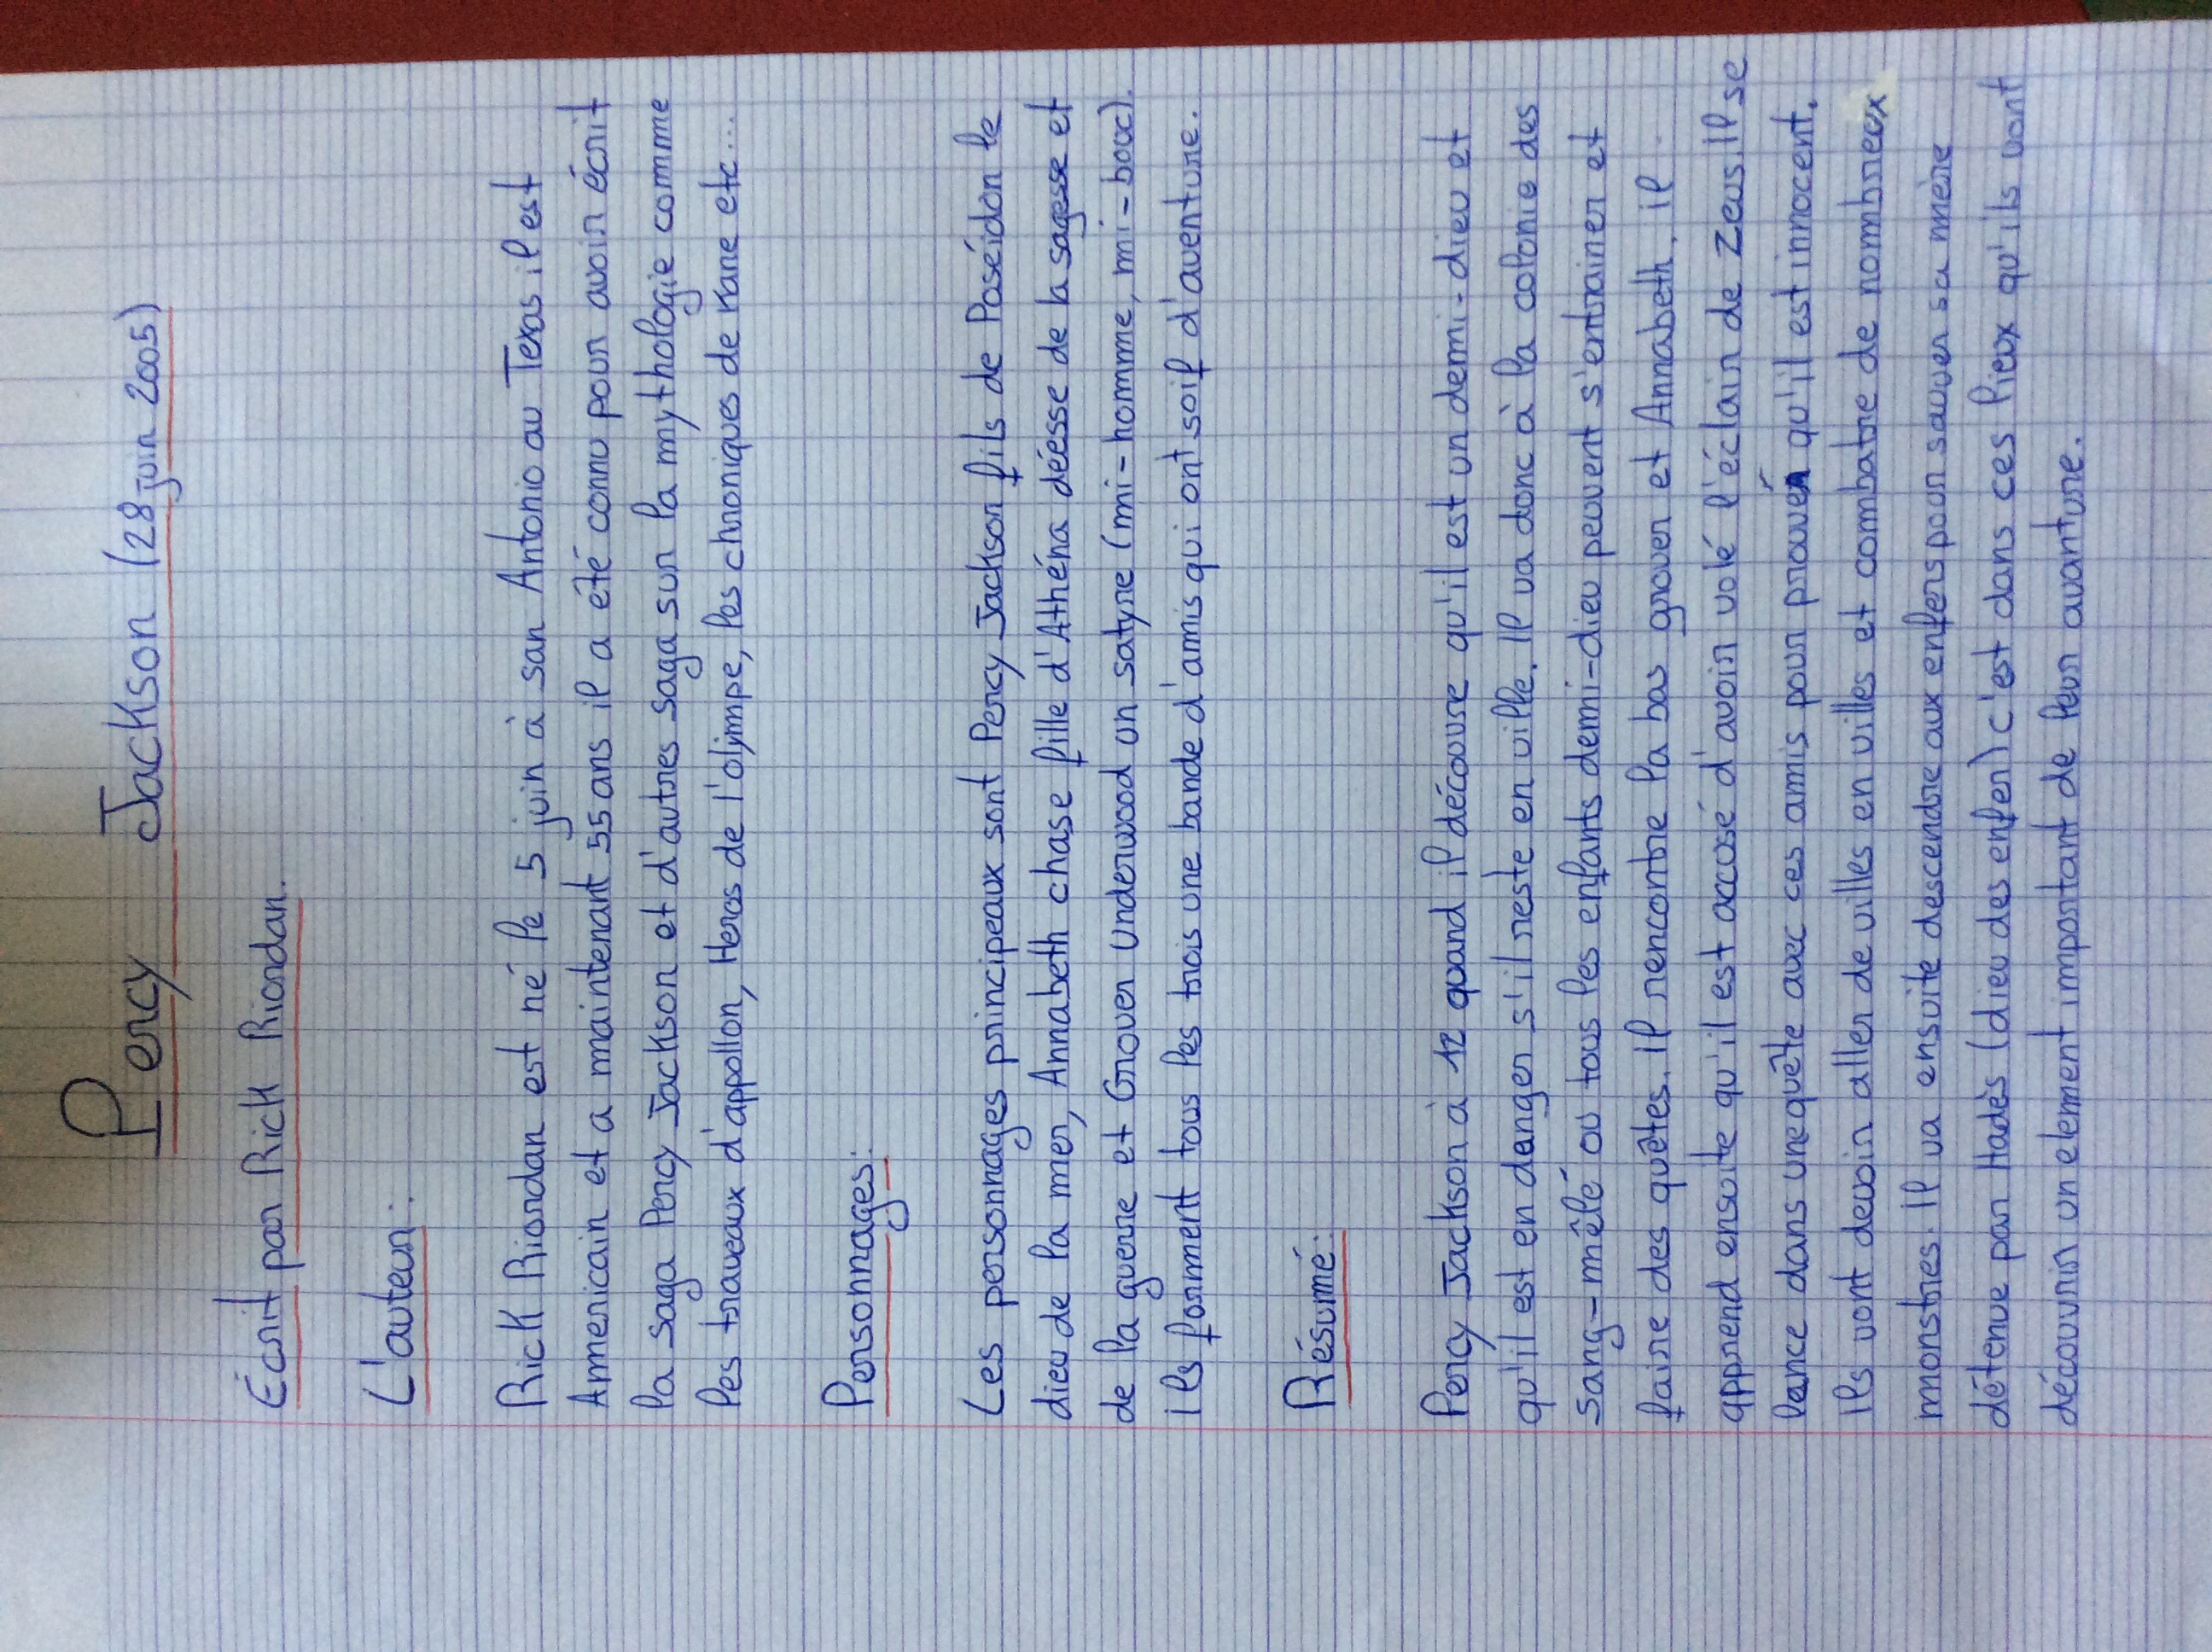 Percy Jackson (28 juin 2005)
Écrit par Rick Riordan.
L'auteur:
Rick Riordan est né le 5 juin à san Antonio au Texas il est
Americain et a maintenant 55 ans il a été connu pour avoir écrit
la saga Percy Jackson et d'autres saga sur la mythologie comme
les travaeaux d'appollon, Heros de l'olympe, les chroniques de Kane etc...
Personnages:
Les personnages principeaux sont Percy Jackson fils de Poséidon le
dieu de la mer, Annabeth chase fille d'Athéna déesse de la sagesse et
de la guerre et Grover Underwood un satyre (mi-homme, mi-bouc).
ils forment tous les trois une bande d'amis qui ont soif d'aventure.
Résumé:
Percy Jackson à 12 quand il découvre qu'il est un demi-dieu et
qu'il est en danger s'il reste en ville. Il va donc à la colonie des
sang-mêlé ou tous les enfants demi-dieu peuvent s'entrainer et
faire des quêtes. Il rencontre la bas grover et Annabeth. il
apprend ensuite qu'il est accusé d'avoir volé l'éclair de Zeus. Il se
lance dans une quête avec ces amis pour prouvér qu'il est innocent.
Ils vont devoir aller de villes en villes et combatre de nombreux
monstres. Il va ensuite descendre aux enfers pour sauver sa mère
détenue par Hadès (dieu des enfer) c'est dans ces lieux qu'ils vont
découvrir un element important de leur avanture.